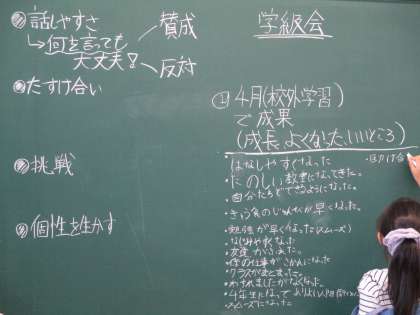 話しやすさ
→何を言っても
大丈夫!!
賛成
反対
たすけ合い
挑戦
個性を生かす
学級会
4月(校外学習)
で成果
(成長、よくなった、いいところ)
・はなしやすくなった
・たのしい教室になってきた。
・自分たちでできるようになった。
早くなった。
・勉強が早くなった(スムーズ)
・なじみやすくなった
・友達がふえた。
・係の仕事がさかんになった
・クラスがまとまった。
・わすれものがなくなった。
・4年生になって
・スムーズになった
・助け合